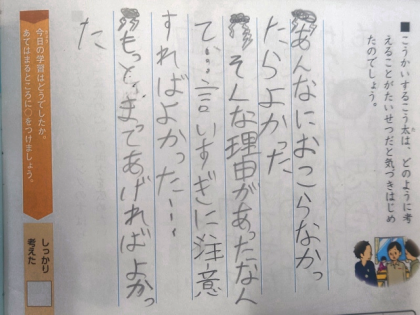 こうかいするこう太は、どのように考
えることがたいせつだと気づきはじめ
たのでしょう。
あんなにおこらなかっ
たらよかった
そんな理由があったなん
て…言いすぎに注意
すればよかった…
もっと、まってあげればよかっ
た
今日の学習はどうでしたか。
あてはまるところに○をつけましょう。
しっかり
考えた